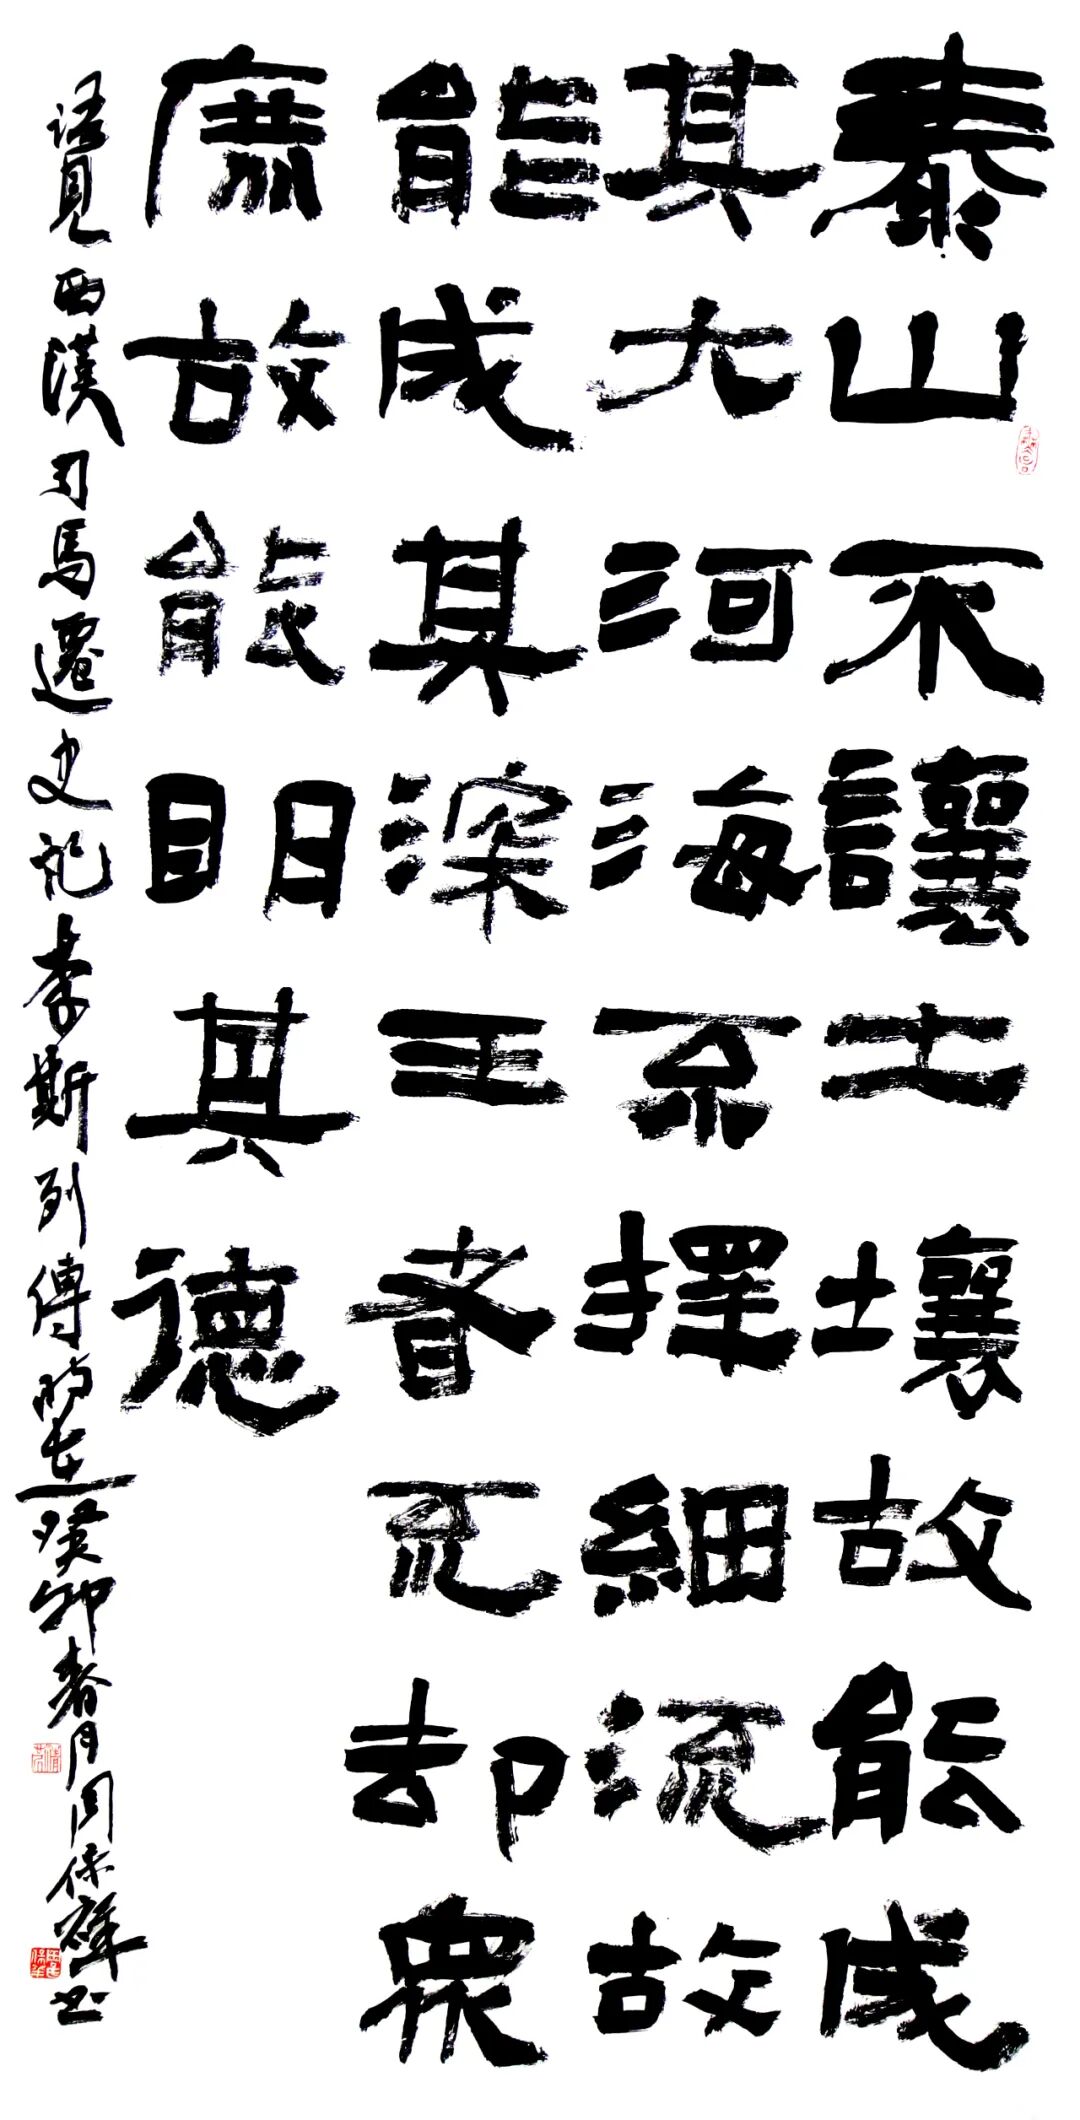 泰山不讓土壤故能成
其大河海不擇細流故
能成其深王者不却衆
庶故能明其德
語見西漢司馬遷史記李斯列傳時在癸卯春月周保祥书